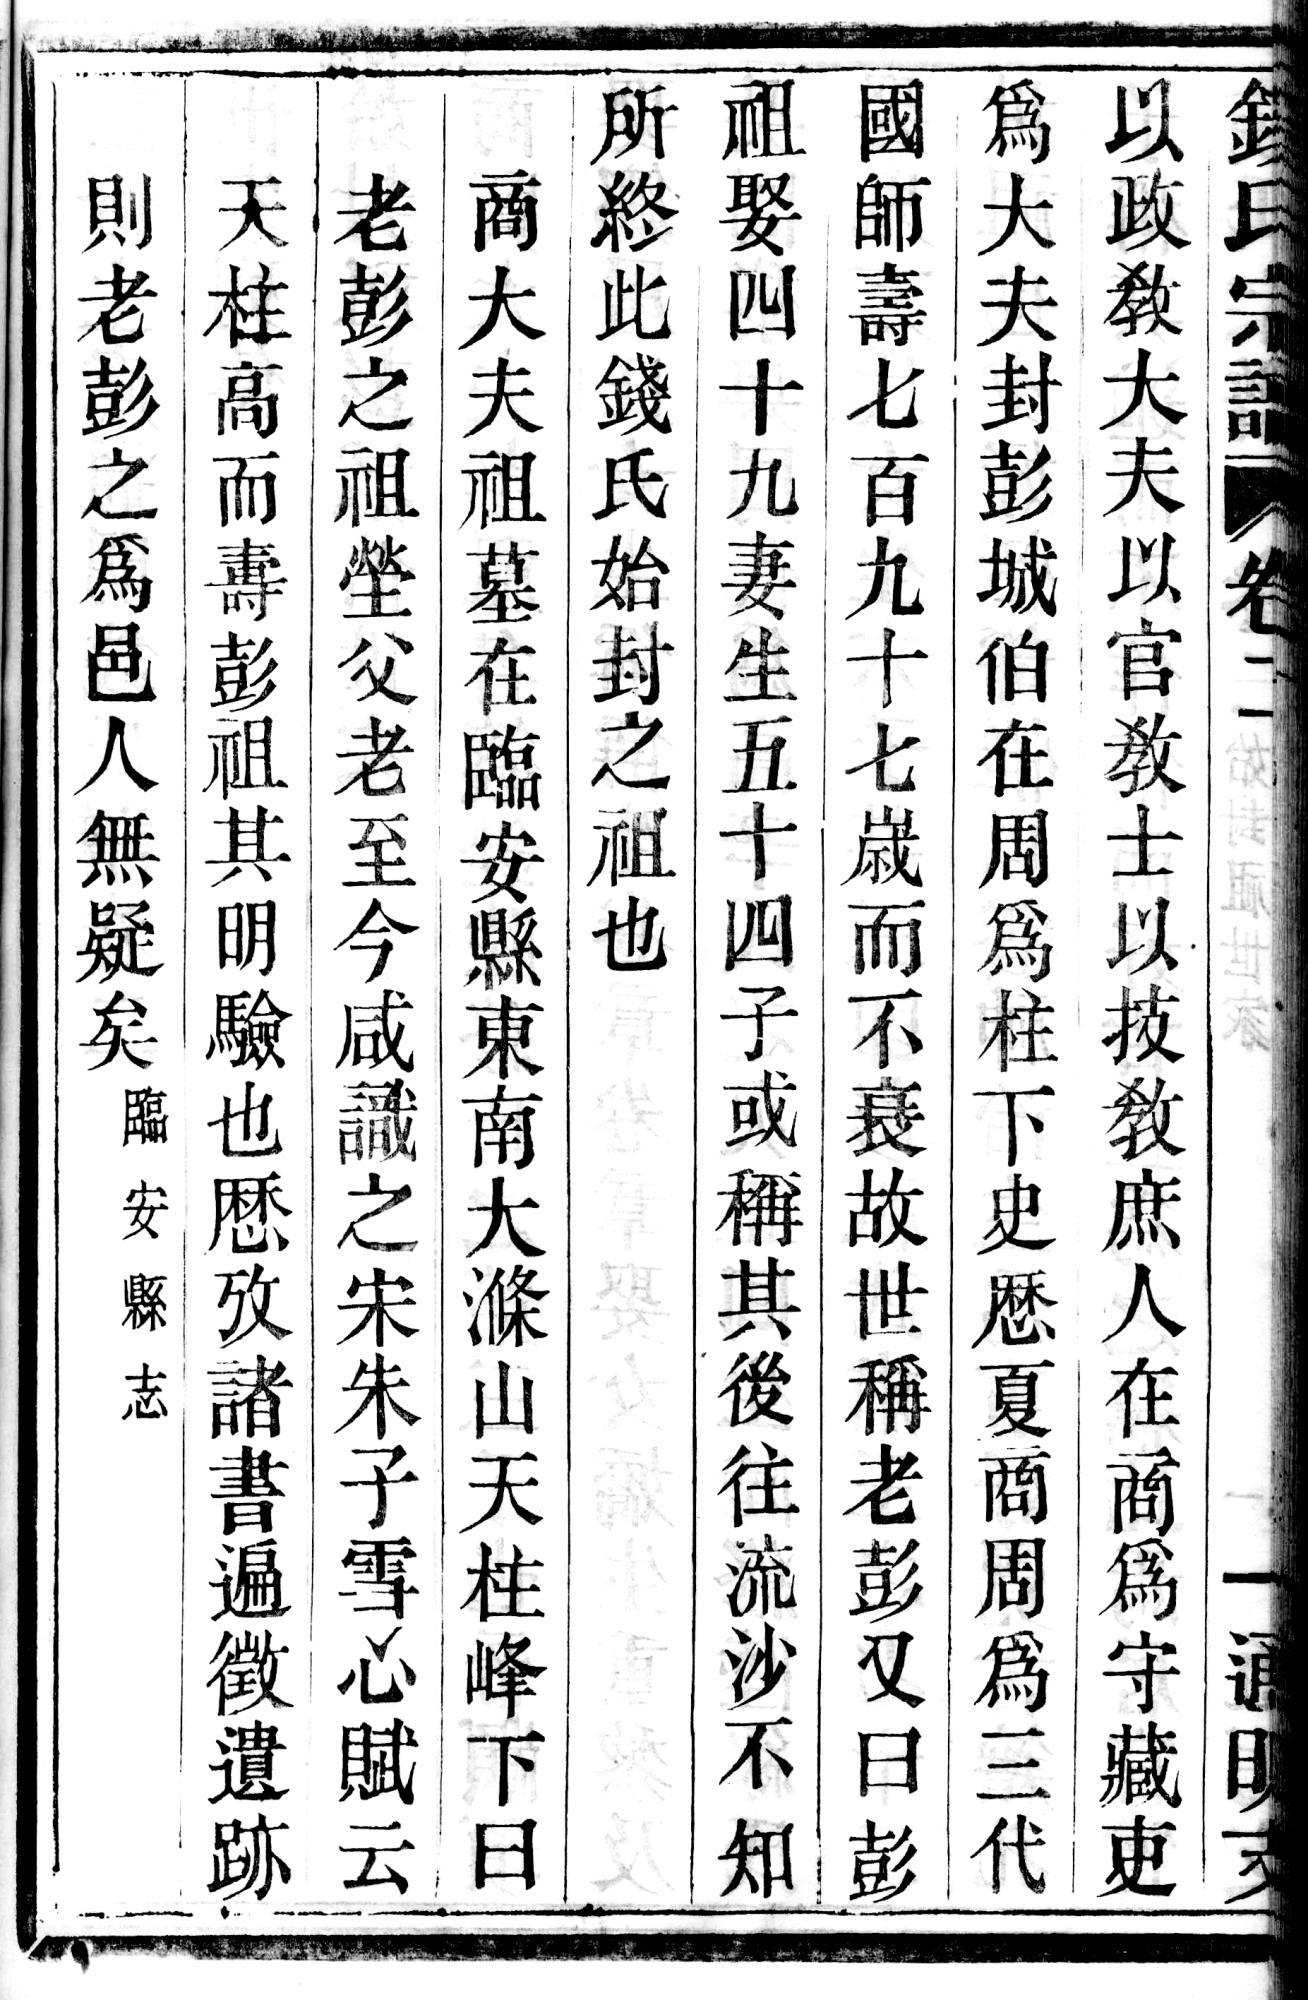 錢氏宗譜 卷二 始封祖世家 一 通明支
以政教大夫以官教士以技教庶人在商爲守藏吏
爲大夫封彭城伯在周爲柱下史歴夏商周爲三代
國師壽七百九十七歲而不衰故世稱老彭又曰彭
祖娶四十九妻生五十四子或稱其後往流沙不知
所終此錢氏始封之祖也
商大夫祖墓在臨安縣東南大滌山天柱峰下曰
老彭之祖塋父老至今咸識之宋朱子雪心賦云
天柱高而壽彭祖其明驗也歴攷諸書遍徵遺跡
則老彭之爲邑人無疑矣臨安縣志